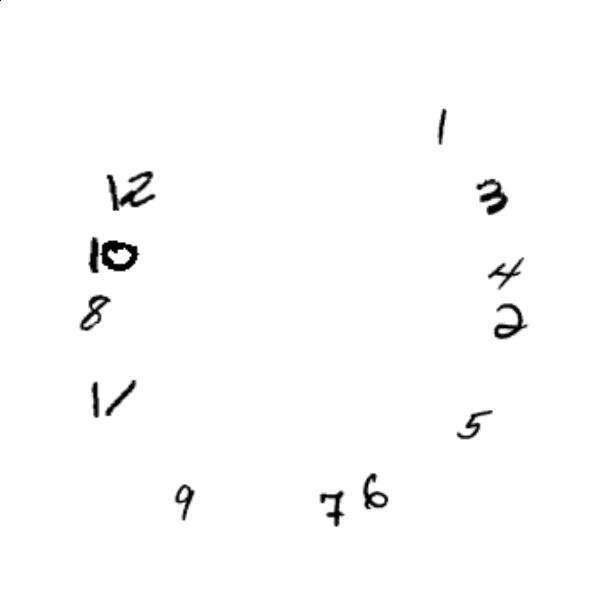 1
12
3
10
4
8
2
11
5
9
7
6